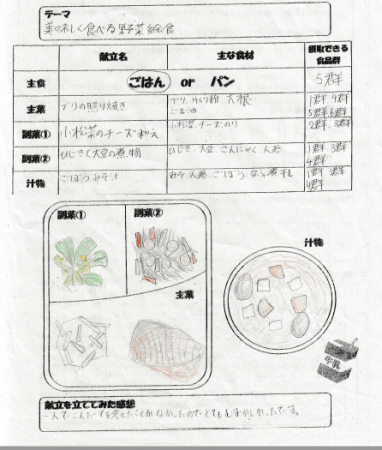 テーマ
美味しく食べる野菜給食
献立名 主な食材 摂取できる食品群
主食 ごはん or パン 5群
主菜 ブリの照り焼き ブリ 片くり粉 大根 1群 4群
ごま油 5群 6群
副菜① 小松菜のチーズ和え 小松菜、チーズ、のり 2群、3群
副菜② ひじきと大豆の煮物 ひじき 大豆 こんにゃく 人参 1群 3群
4群
汁物 ごぼうみそ汁 みそ 人参 ごぼう 1群 3群
4群
副菜① 副菜②
汁物
主菜
牛乳
献立を立ててみた感想
一人でこんだてを考えたことがなかったのでとてもむずかしかったです。